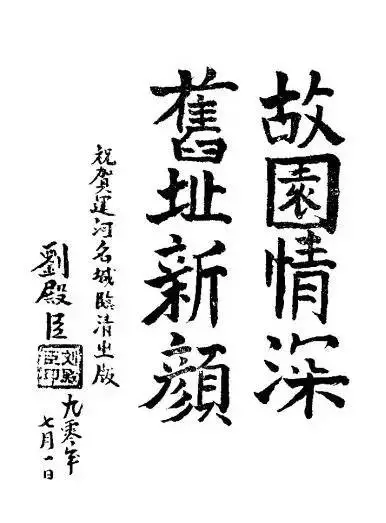 故園情深
舊址新顔
祝賀運河名城臨清出版
劉殿臣
刘殿臣印
九零年
七月一日